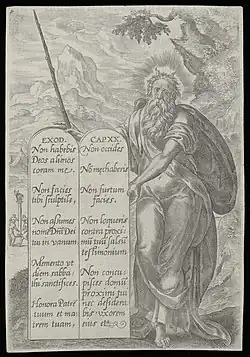 EXOD.
Non habebis
Deos alienos
coram me.
Non facies
tibi sculptile,
Non assumes
nome Dñi Dei
tui in vanum
Memento ut
diem sabba
thi sanctifices.
Honora Patrē
tuum et ma
trem tuam,
CAP.XX.
Non occides
Nō mœchaberis
Non furtum
facies.
Non loqueris
contra proxi
mū tuū falsū
testimonium.
Non concu
pisces domū
proximi tui
nec desiderabis
vxorem
eius etc